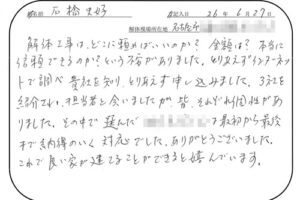 お名前 石橋 様 ご記入日 26年6月27日
解体現場所在地
解体工事は、どこに頼めばいいのか? 金額は? 本当に
信頼できるのか? という不安がありました。とりあえずインターネッ
トで調べ 貴社を知り、とりあえず申し込みました。3社を
紹介され、担当者と会いましたが 皆、それぞれ個性があ
りました。その中で選んだ は最初から最後
まで納得のいく対応でした。ありがとうございました。
これで良い家が建てることができると嬉んでいます。